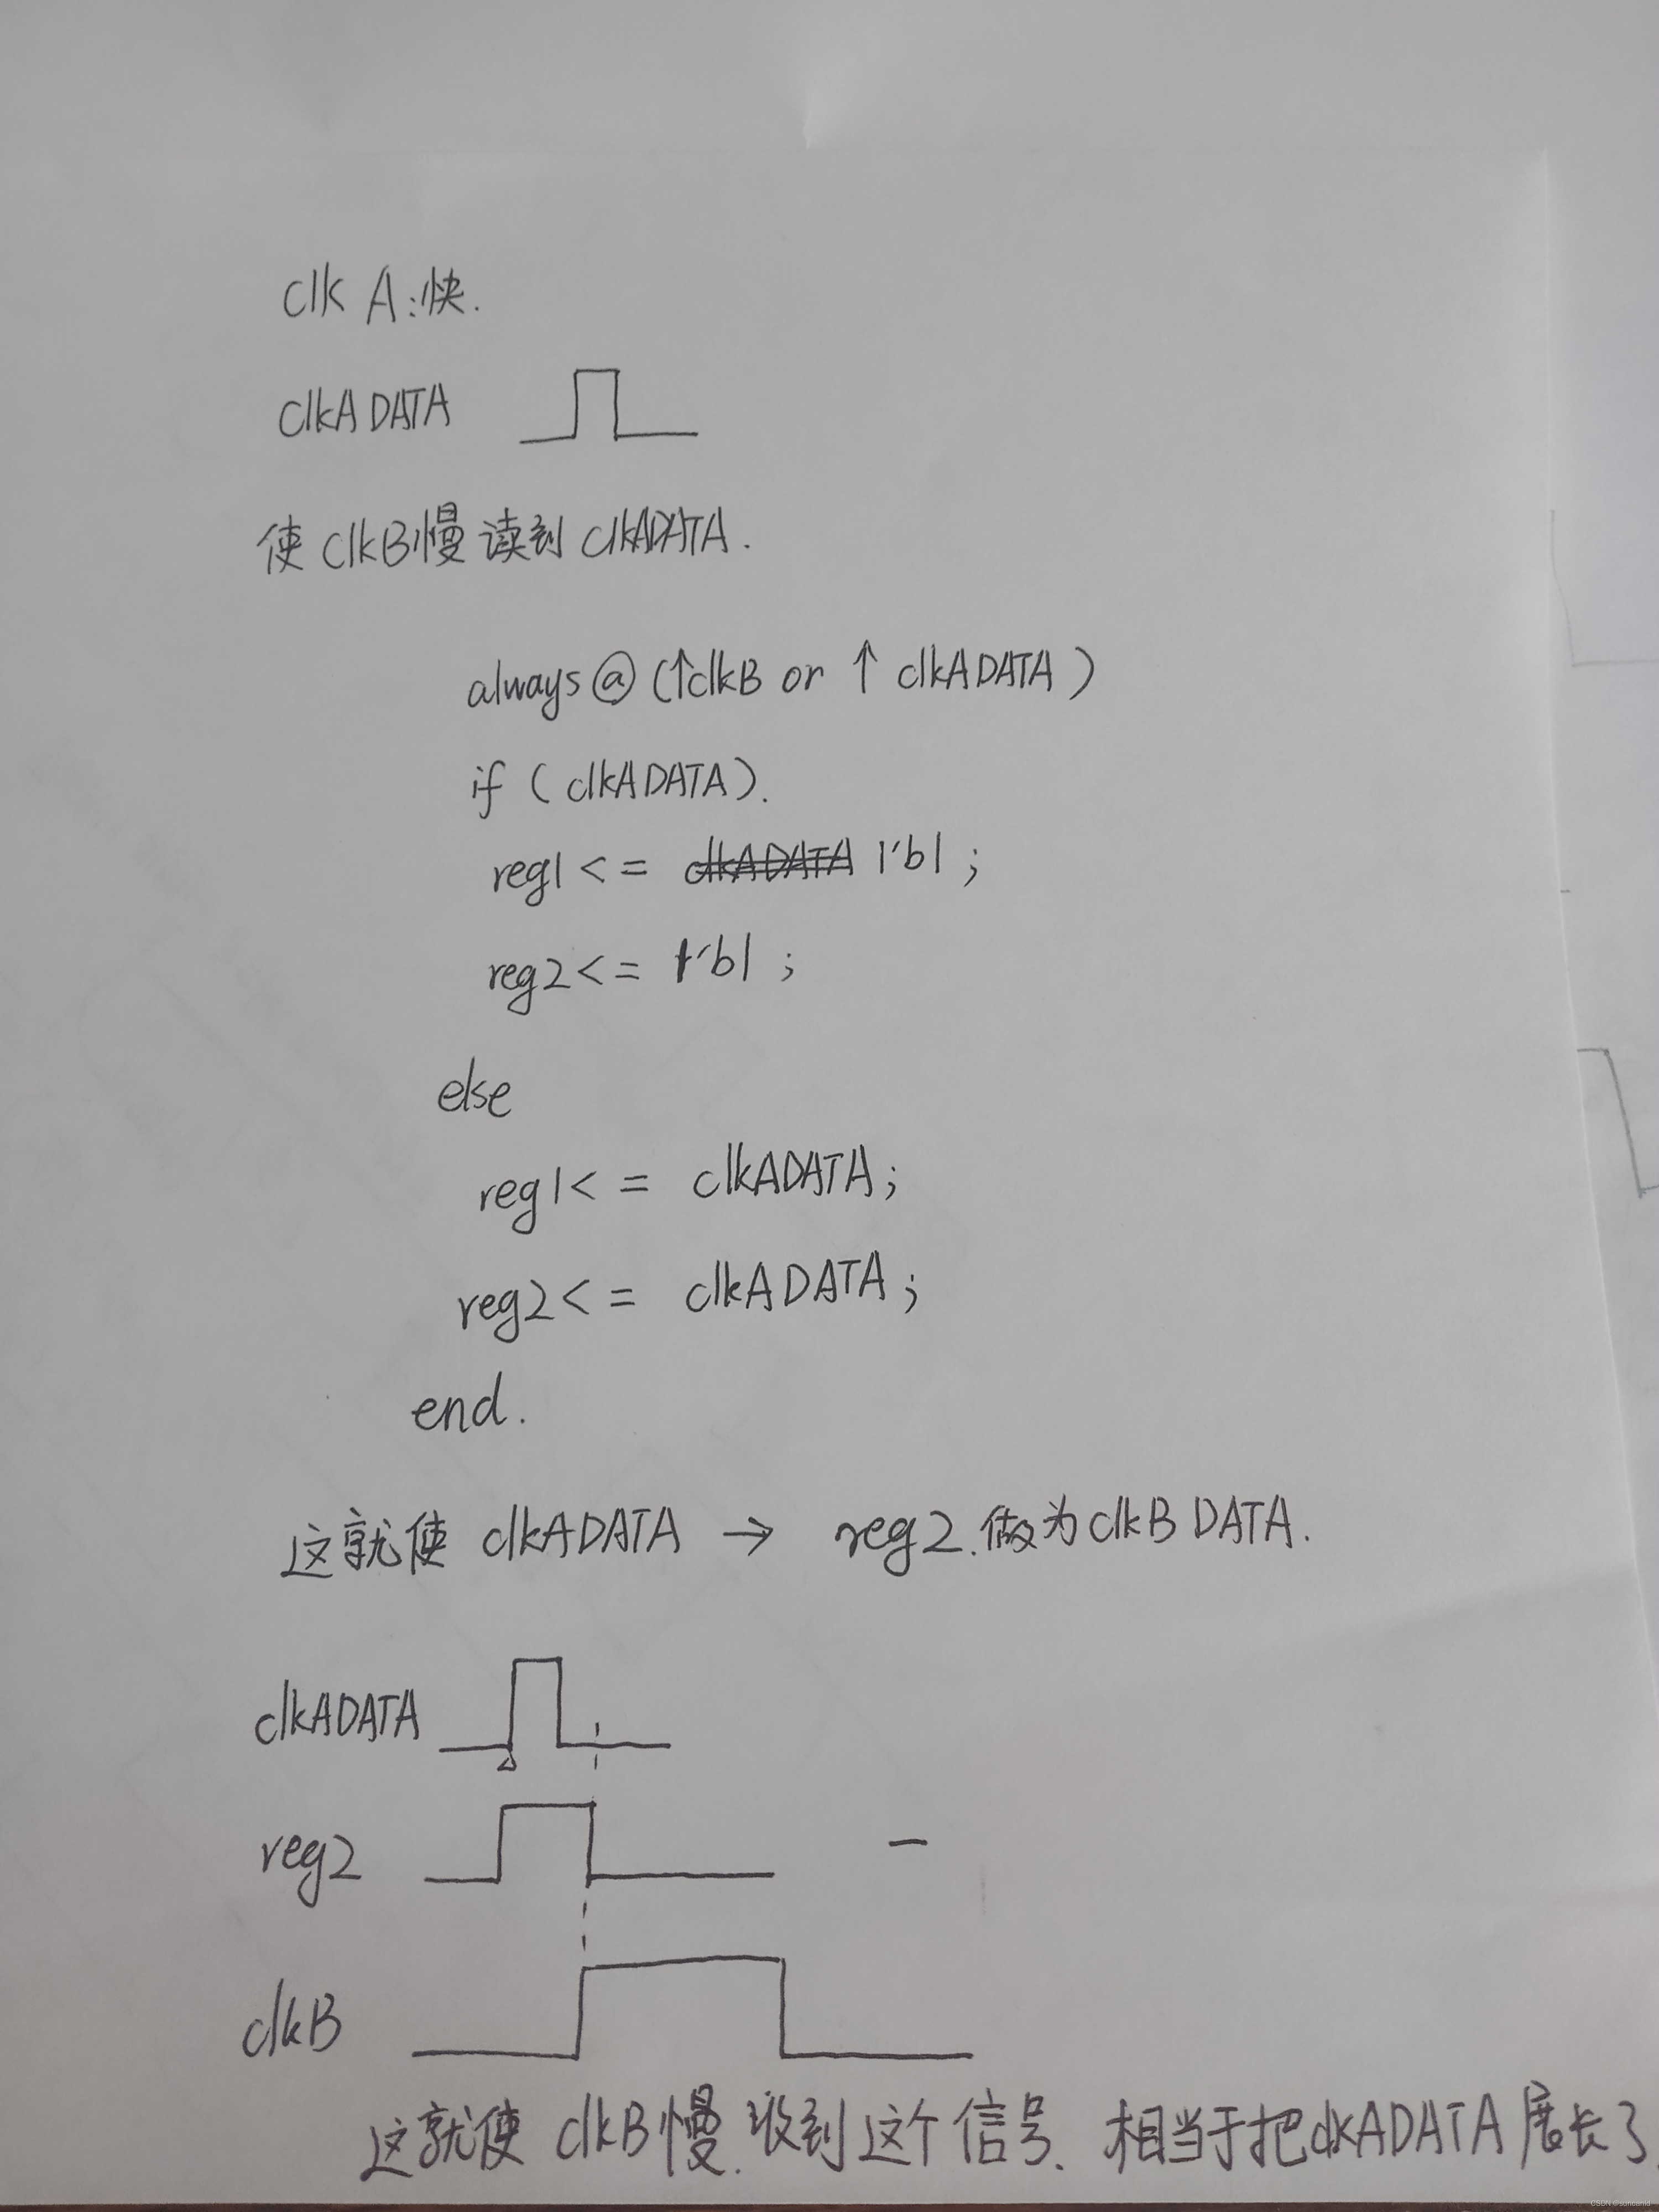 clk A:快.
clkADATA
使clkB慢读到clkADATA.
always@(↑clkB or ↑clkADATA)
if (clkADATA).
reg1<= clkADATA 1'b1;
reg2<= 1'b1;
else
reg1<= clkADATA;
reg2<= clkADATA;
end.
这就使 clkADATA → reg2.做为clkB DATA.
clkADATA
reg2
clkB
这就使 clkB慢.收到这个信号、相当于把clkADATA展长了